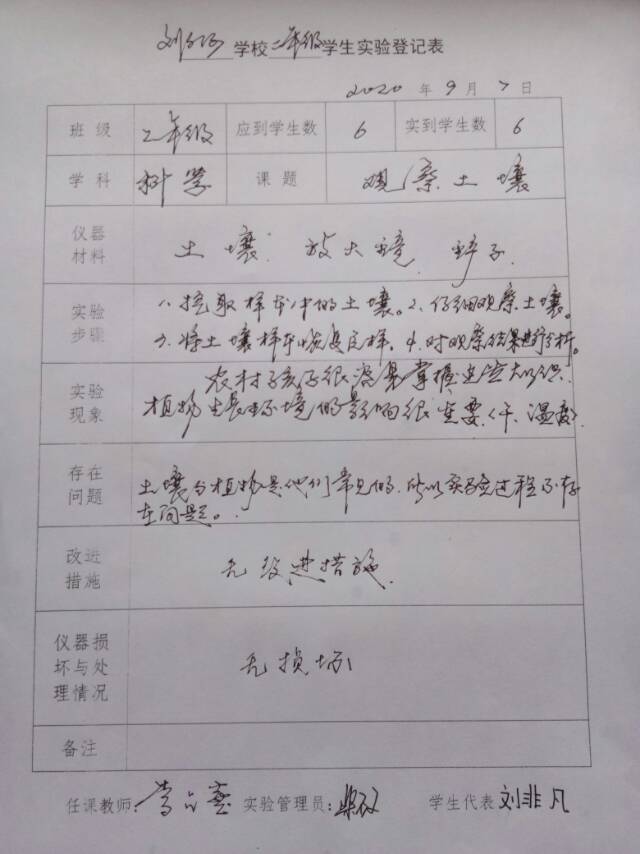 刘 学校二年级学生实验登记表
2020 年 9 月 7 日
班 级 二年级 应到学生数 6 实到学生数 6
学 科 科学 课 题 观察土壤
仪器
材料
土壤 放大镜 铲子
实验
步骤
1、挖取样本中的土壤。2、仔细观察土壤。
3、将土壤样本 4、对观察结果进行分析。
实验
现象
农村孩子很容易掌握这些知识.
植物生长环境的影响很重要(干、温度).
存在
问题
土壤与植物是他们常见的.所以实验过程不存
在问题。
改进
措施
无改进措施.
仪器损
坏与处
理情况
无损坏
备注
任课教师: 李 燕 实验管理员: 学生代表 刘非凡